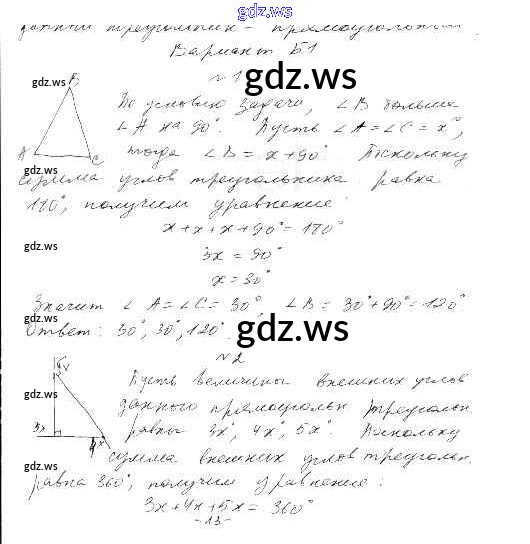 gdz.ws
данный треугольник - прямоугольный
Вариант Б1
№1
gdz.ws
gdz.ws
B
По условию задачи, ∠B больше
∠A на 90°. Пусть ∠A = ∠C = x°,
A C тогда ∠B = x + 90°. Поскольку
gdz.ws
сумма углов треугольника равна
180°, получим уравнение:
x + x + x + 90° = 180°
gdz.ws
3x = 90°
x = 30°
Значит ∠A = ∠C = 30°, ∠B = 30° + 90° = 120°
Ответ: 30°, 30°, 120°.
gdz.ws
gdz.ws
№2
Пусть величины внешних углов
gdz.ws
данного прямоугольн. треугольн.
3x
равны 3x°, 4x°, 5x°. Поскольку
gdz.ws
сумма внешних углов треугольн.
равна 360°, получим уравнение:
3x + 4x + 5x = 360°
gdz.ws
-13-